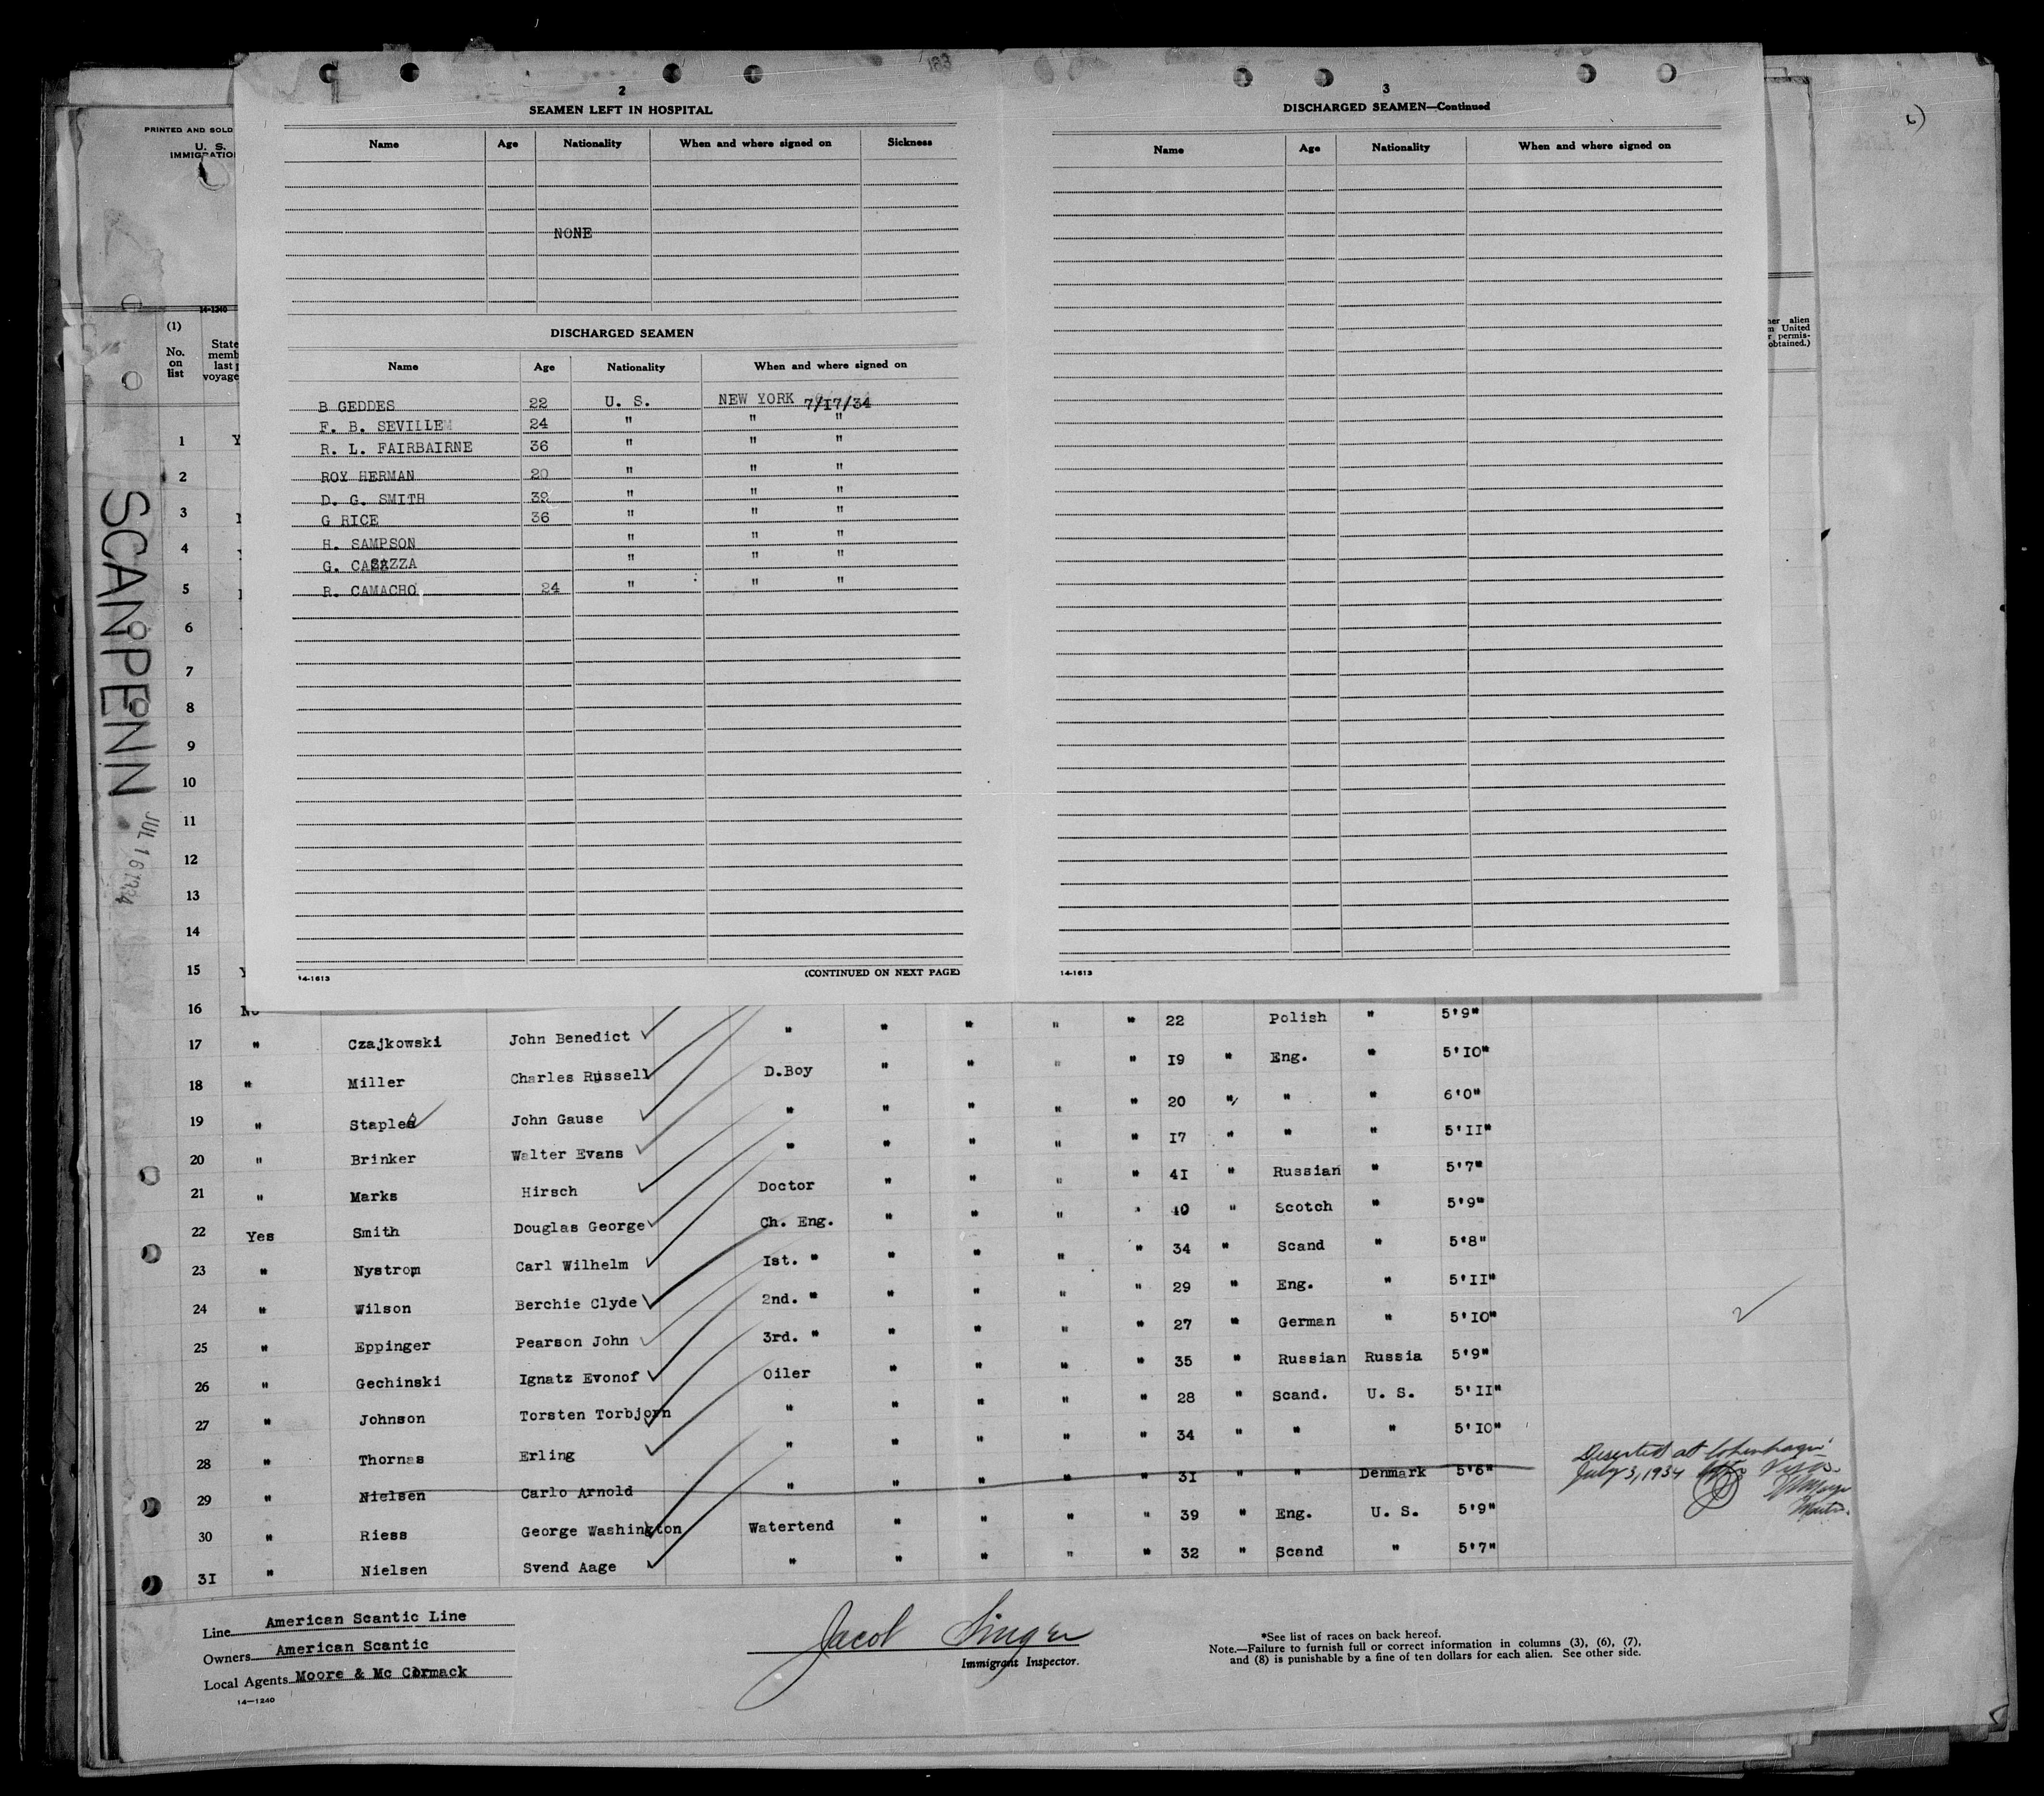 183
2
SEAMEN LEFT IN HOSPITAL
Name Age Nationality When and where signed on Sickness
NONE
DISCHARGED SEAMEN
Name Age Nationality When and where signed on
B GEDDES 22 U. S. NEW YORK 7/17/34
F. B. SEVILLE 24 " " "
R. L. FAIRBAIRNE 36 " " "
ROY HERMAN 20 " " "
D. G. SMITH 39 " " "
G RICE 36 " " "
H. SAMPSON " " "
G. CASAZZA " " "
R. CAMACHO 24 " " "
14-1613 (CONTINUED ON NEXT PAGE)
3
DISCHARGED SEAMEN—Continued
Name Age Nationality When and where signed on
14-1613
PRINTED AND SOLD
U. S.
IMMIGRATION
14-1240
(1)
No. on list
State
memb
last p
voyage
her alien
m United
r permis-
obtained.)
SCANPENN
JUL 16 1934
1 Y
2
3
4
5
6
7
8
9
10
11
12
13
14
15 Y
16 No
17 " Czajkowski John Benedict " " " " " 22 Polish " 5'9"
18 " Miller Charles Russell D.Boy " " " " 19 " Eng. " 5'10"
19 " Staples John Gause " " " " " 20 " " " 6'0"
20 " Brinker Walter Evans " " " " " 17 " " " 5'11"
21 " Marks Hirsch Doctor " " " " 41 " Russian " 5'7"
22 Yes Smith Douglas George Ch. Eng. " " " " 40 " Scotch " 5'9"
23 " Nystrom Carl Wilhelm 1st. " " " " " 34 " Scand " 5'8"
24 " Wilson Berchie Clyde 2nd. " " " " " 29 " Eng. " 5'11"
25 " Eppinger Pearson John 3rd. " " " " " 27 " German " 5'10"
26 " Gechinski Ignatz Evonof Oiler " " " " 35 " Russian Russia 5'9"
27 " Johnson Torsten Torbjorn " " " " " 28 " Scand. U. S. 5'11"
28 " Thornas Erling " " " " " 34 " " " 5'10"
29 " Nielsen Carlo Arnold " " " " " 31 " " Denmark 5'6"
Deserted at Cohenhagen
July 3, 1934
30 " Riess George Washington Watertend " " " " 39 " Eng. U. S. 5'9"
31 " Nielsen Svend Aage " " " " " 32 " Scand " 5'7"
Line American Scantic Line
Owners American Scantic
Local Agents Moore & Mc Cormack
14—1240
Jacob Singer
Immigrant Inspector.
*See list of races on back hereof.
Note.—Failure to furnish full or correct information in columns (3), (6), (7),
and (8) is punishable by a fine of ten dollars for each alien. See other side.